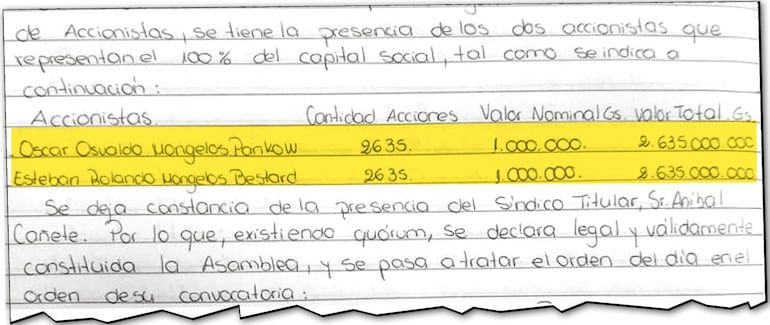 de Accionistas, se tiene la presencia de los dos accionistas que
representan el 100% del capital social, tal como se indica a
continuación:
Accionistas. Cantidad Acciones Valor Nominal Gs. Valor Total. Gs.
Oscar Osvaldo Mongelos Pankow 2635. 1.000.000. 2.635.000.000
Esteban Rolando Mongelos Bestard 2635. 1.000.000. 2.635.000.000
Se deja constancia de la presencia del Síndico Titular, Sr. Anibal
Cañete. Por lo que, existiendo quórum, se declara legal y válidamente
constituida la Asamblea, y se pasa a tratar el orden del día en el
orden de su convocatoria: